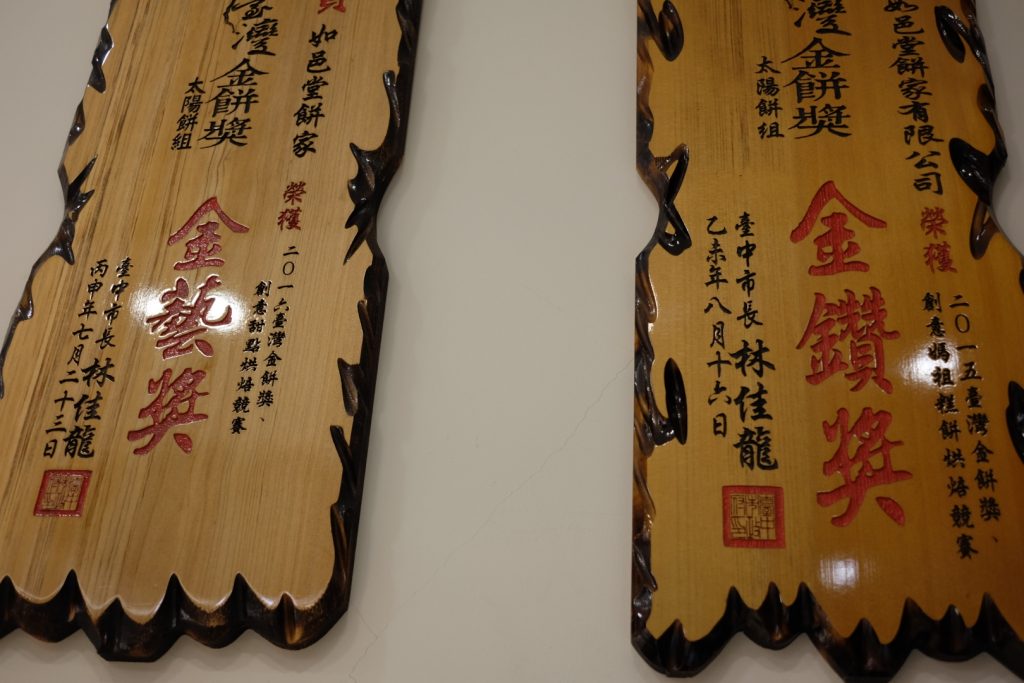 如邑堂餅家
榮獲
二〇一六臺灣金餅獎、
創意甜點烘焙競賽
灣金餅獎
太陽餅組
金藝獎
臺中市長 林佳龍
丙申年七月二十三日
如邑堂餅家有限公司
榮獲
二〇一五臺灣金餅獎、
創意媽祖糕餅烘焙競賽
灣金餅獎
太陽餅組
金鑽獎
臺中市長 林佳龍
乙未年八月十六日